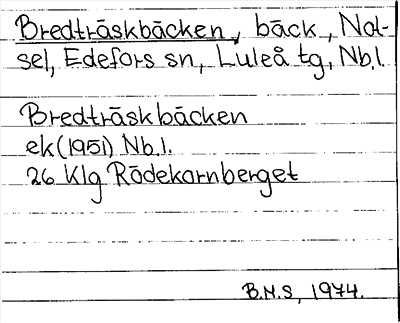 Bredträskbäcken, bäck, Nat-
sel, Edefors sn, Luleå tg, Nb.l.
Bredträskbäcken
ek (1951) Nb.l.
26 Klg Rödekornberget
B.M.S, 1974.